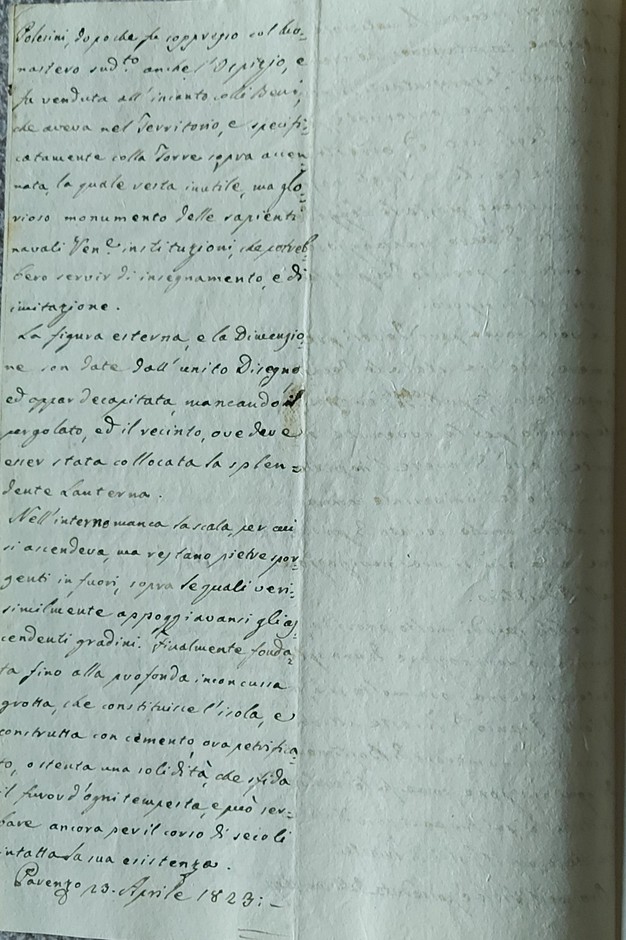 Polesini, dopoche fu soppresso col Mo-
nastero sud.to anche l'Ospizio, e
fu venduta all'incanto colli Beni,
che aveva nel Territorio, e specifi-
catamente colla Torre sopra accen-
nata, la quale resta inutile, ma glo-
rioso monumento delle sapienti
navali Ven.e instituzioni, che potreb-
bero servir di insegnamento, e di
imitazione.
La figura esterna, e la Dimensio-
ne son date dall'unito Disegno
ed appar decapitata, mancando il
pergolato, ed il recinto, ove deve
esser stata collocata la splen-
dente Lanterna.
Nell'interno manca la scala, per cui
si ascendeva, ma restano pietre spor-
genti in fuori, sopra le quali veri-
similmente appoggiavansi gli as-
cendenti gradini. Finalmente fonda-
ta fino alla profonda inconcussa
grotta, che constituisce l'isola, e
construtta con cemento, ora petrifica-
to, ostenta una solidità, che sfida
il furor d'ogni tempesta, e può ser-
bare ancora per il corso di secoli
intatta la sua esistenza.
Parenzo 23. Aprile 1823:-